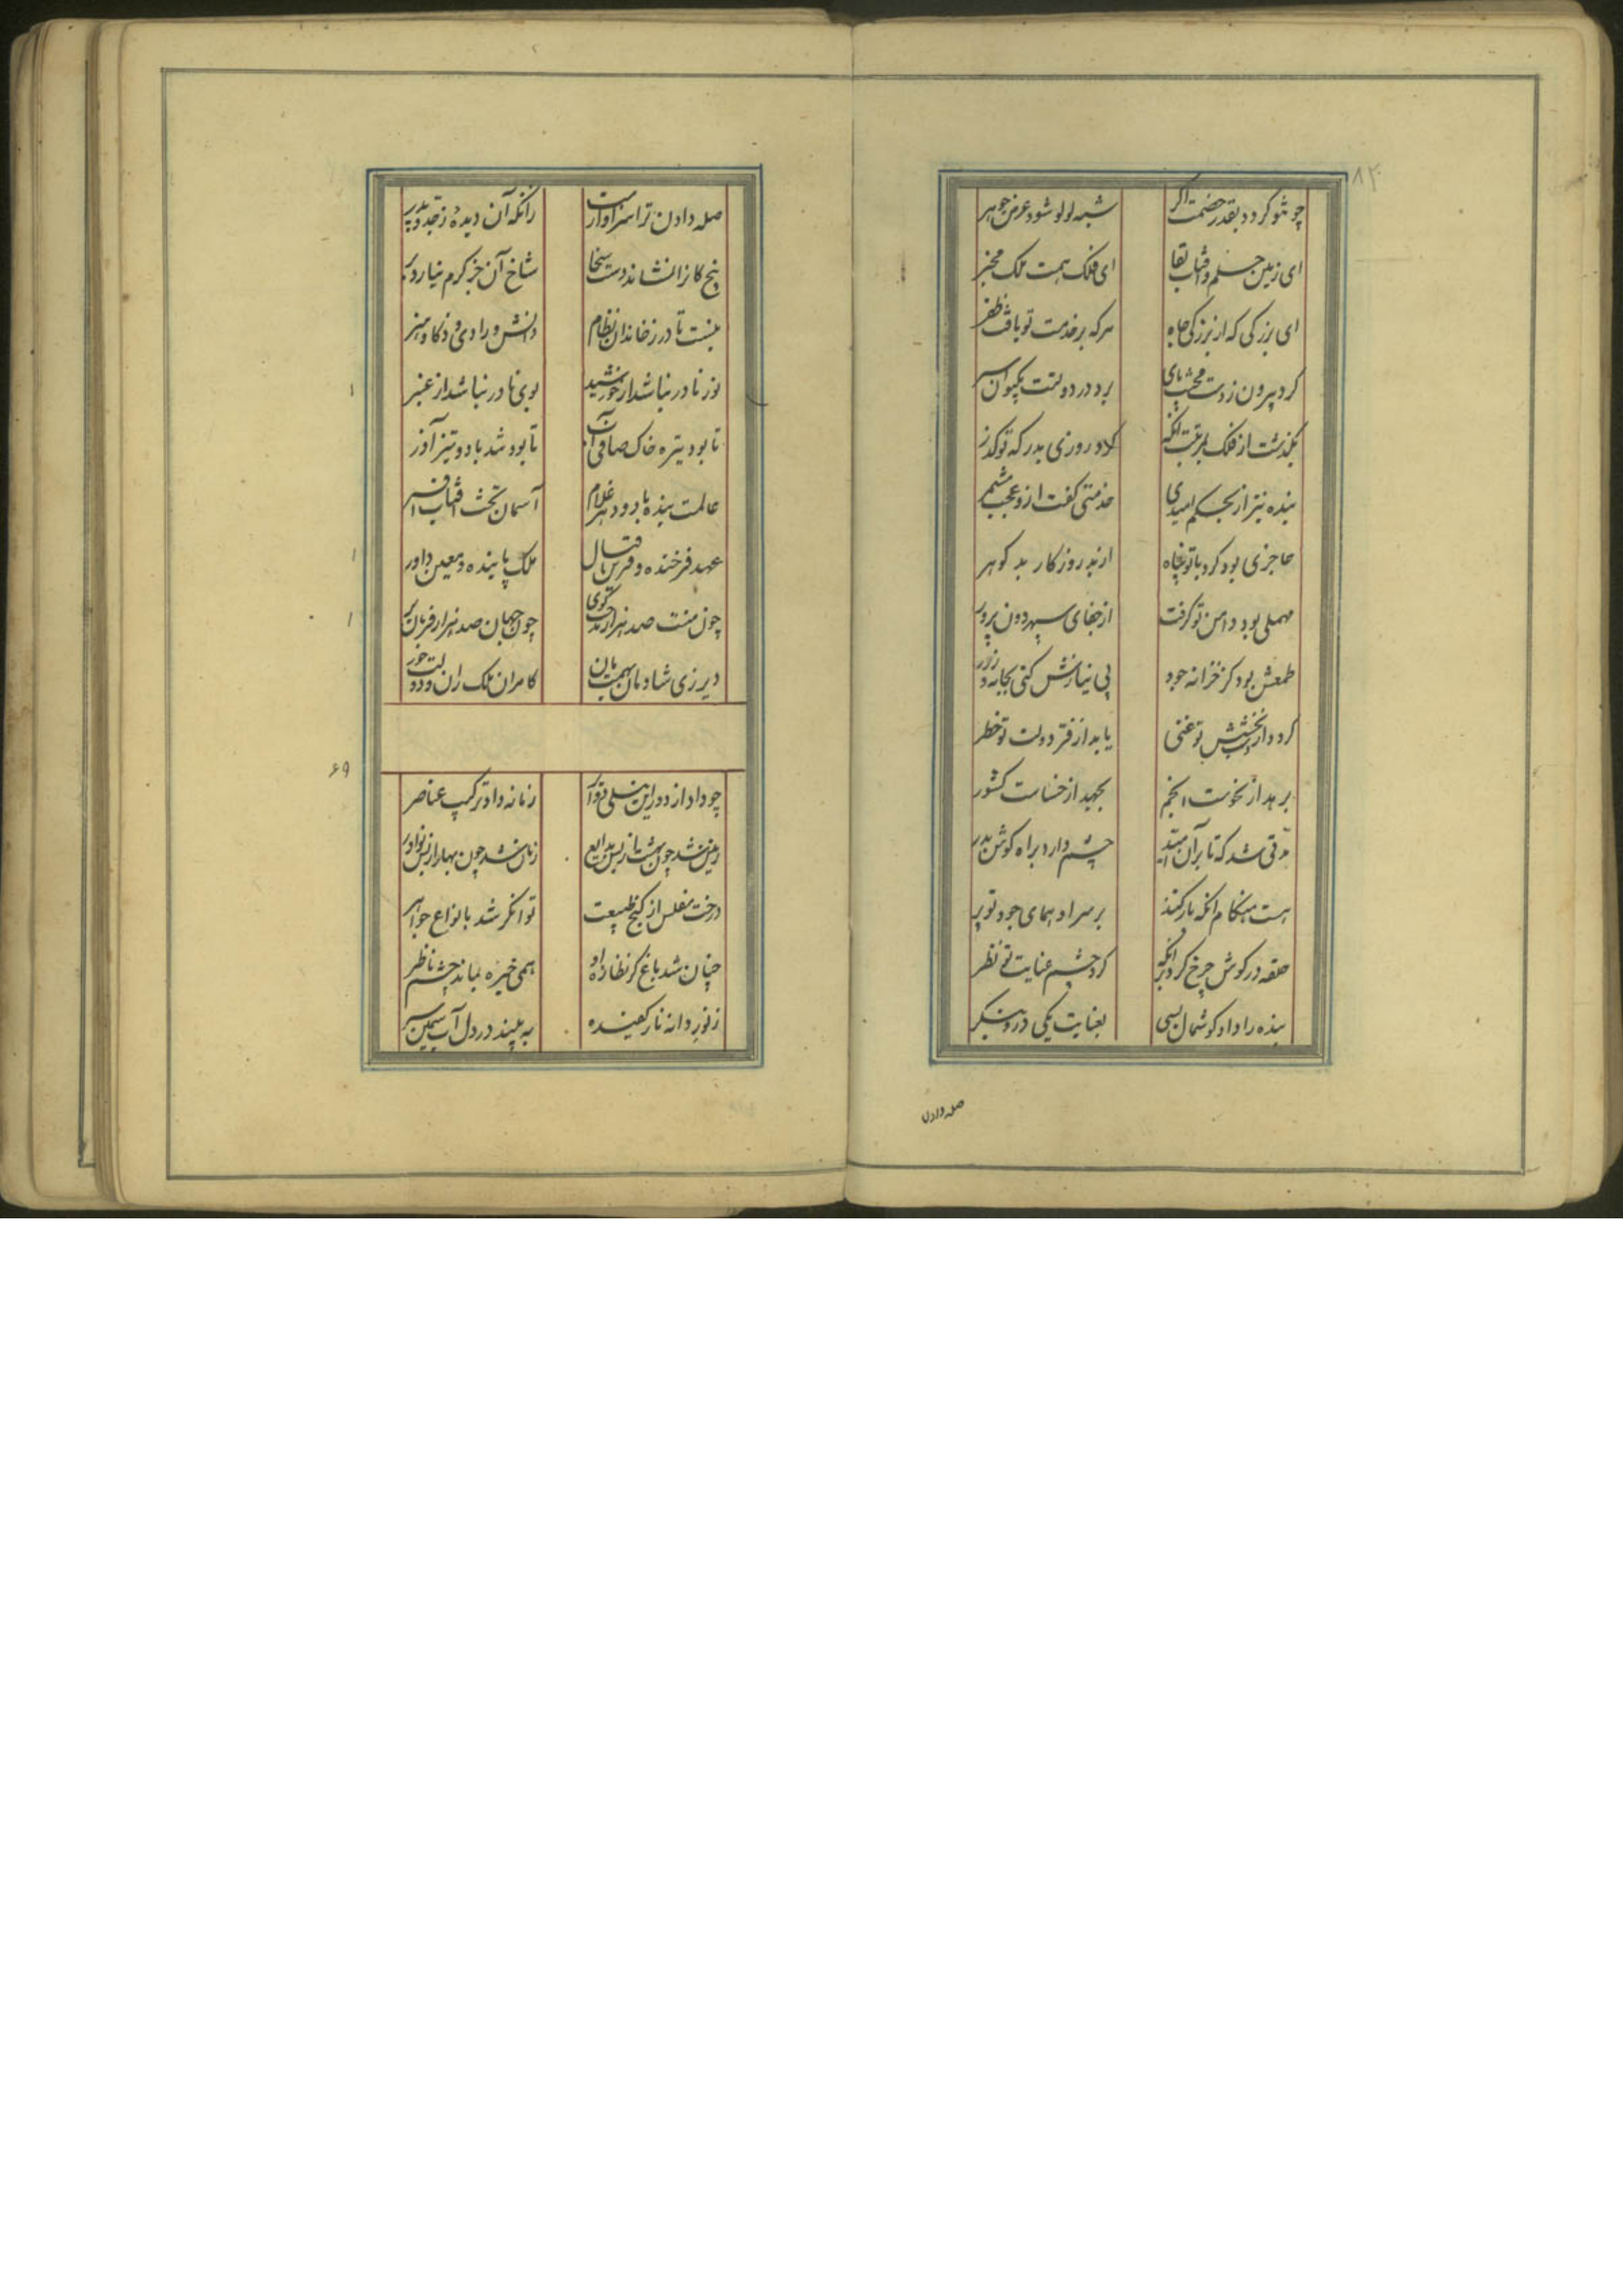 ۸۲
چو شو کردد بقدر خصمت اکر شبه لولو شود عرض جوهر
ای زمین حلم و آفتاب لقا ای فلک همت ملک مخبر
ای بزرکی که از بزرکی جاه هرکه بر خدمت تو یافت ظفر
کرد بیرون ز دست محنت پای برد در دولتت بکیوان سر
بکذشت از فلک بمرتبت آنکه کرد روزی بدرکه تو کذر
بنده نیز از بحکم امیدی خدمتی کفت ازو عجب مشمر
عاجزی بود کرد با تو پناه از بد روزکار بد کوهر
مهملی بود دامن تو کرفت از جفای سپهر دون پرور
طمعش بود کز خزانه جود بی نیازش کنی بجامه و زر
کردد از بخشش تو غنی یابد از فر دولت تو خطر
برهد از نحوست انجم بجهد از خساست کشور
مدتی شد که تا بر آن امید چشم دارد براه کوش بدر
هست هنکام آنکه باز کند بر سر او همای جود تو پر
حلقه در کوش چرخ کرد هر آنکه کرد چشم عنایت تو نظر
بنده را داد کوشمال بسی بعنایت یکی درو بنکر
صله دادن
صله دادن ترا سزاوارست زانکه آن دیدهٔ ز جد و پدر
بیخ کانرا نشاند دست سخا شاخ آن جز کرم نیارد بر
نیست نادر ز خاندان نظام دانش و رادی و ذکا و هنر
نور نادر نباشد از خورشید بوی نادر نباشد از عنبر
تا بود تیره خاک و صافی آب تا بود تند باد و تیز آذر
عالمت بنده باد و دهر غلام آسمان تخت و آفتاب افسر
عهد فرخنده و قرین اقبال ملک پاینده و معین داور
چون منت صد هزار مدحت کوی چون جهان صد هزار فرمان بر
دیر زی شادمان بهمت مان کامران ملک ران و دولت خور
۶۹
چو داد از دور این نیلی دوایر زمانه داد ترکیب عناصر
زمین شد چون بهشت از بس بدایع زمان شد چون بهار از بس نوادر
درخت مفلس از کنج طبیعت توانکر شد بانواع جواهر
چنان شد باغ کز نظاره او همی خیره بماند چشم ناظر
ز نور دانه نار کفیده به بیند در دل آبی سمین سر